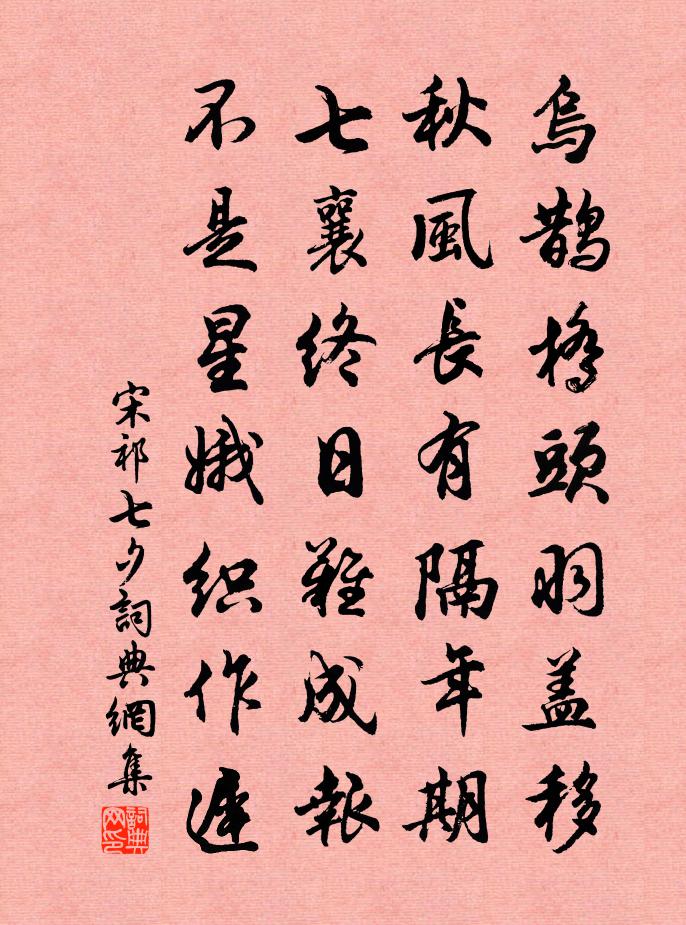 烏鵲橋頭羽蓋移
秋風長有隔年期
七襄終日難成報
不是星娥織作遲
宋祁七夕詞典網集
詞典网印